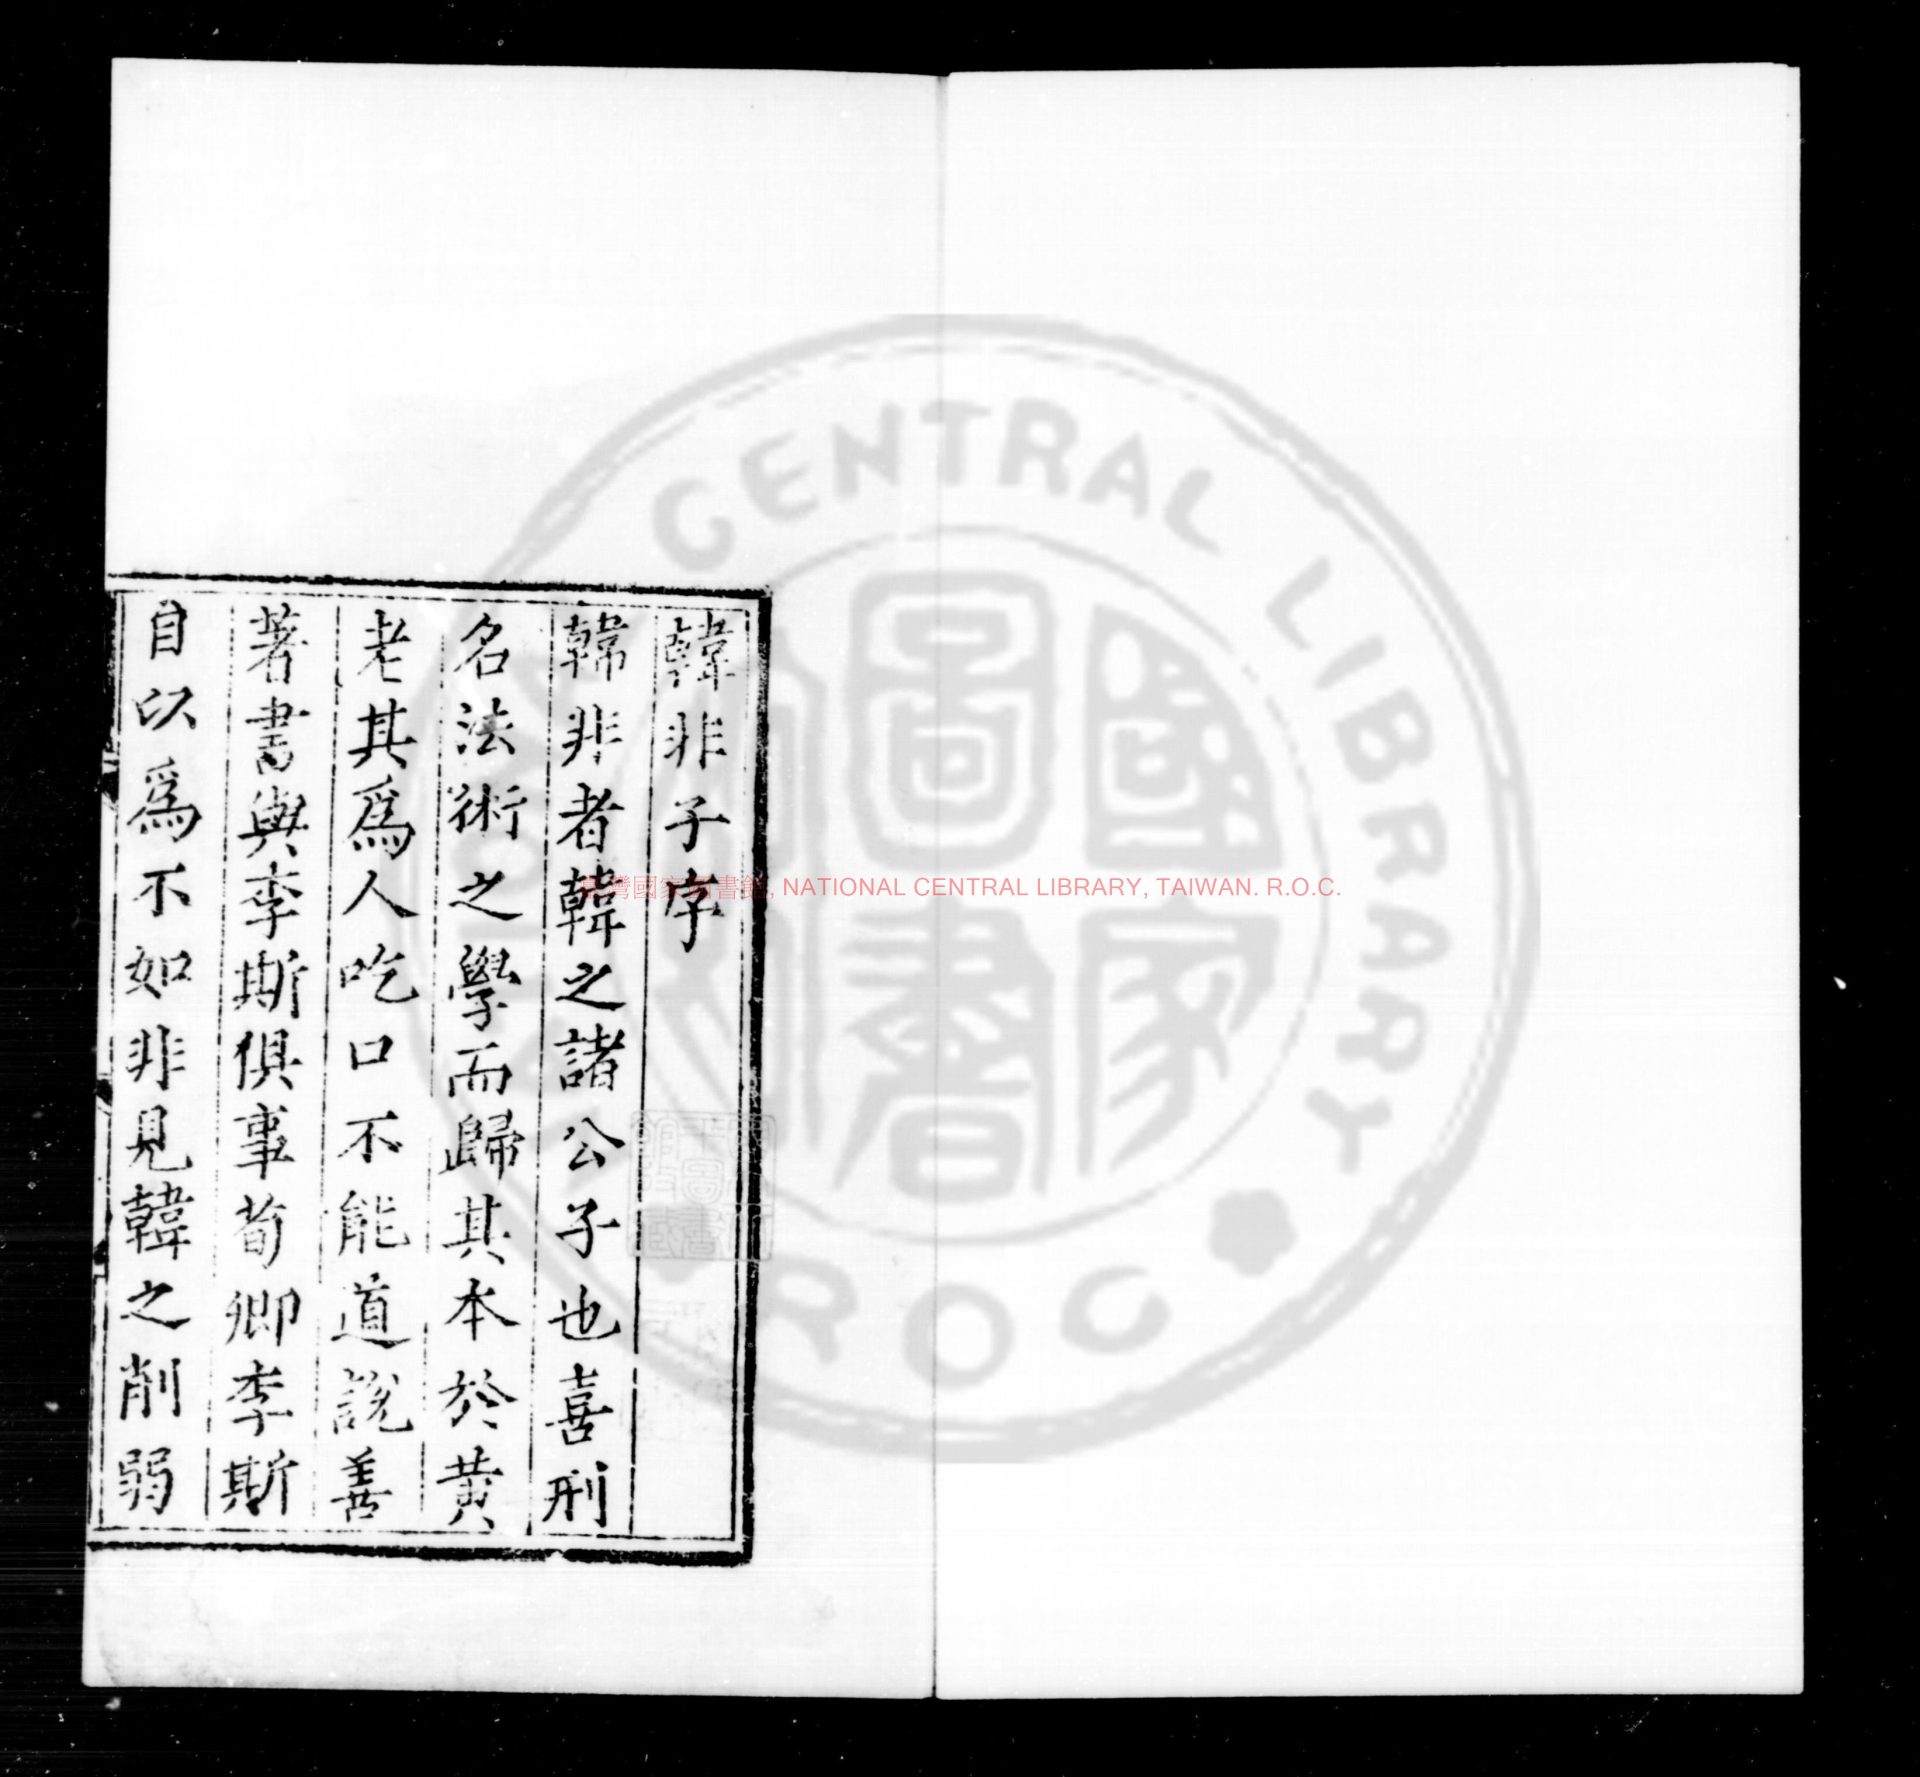 韓非子序
韓非者韓之諸公子也喜刑
名法術之學而歸其本於黃
老其爲人吃口不能道說善
著書與李斯俱事荀卿李斯
自以爲不如非見韓之削弱
臺灣國家圖書館, NATIONAL CENTRAL LIBRARY, TAIWAN. R.O.C.
CENTRAL LIBRARY
國家圖書
R O C